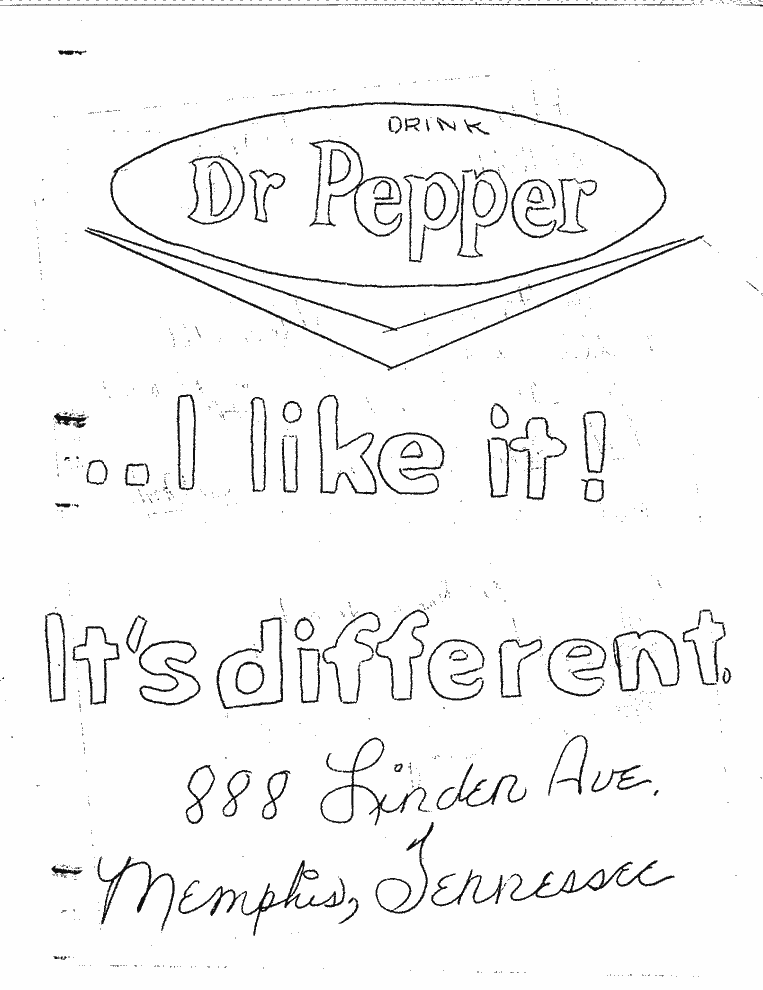 DRINK
Dr Pepper
...I like it!
It's different.
888 Linden Ave.
Memphis, Tennessee